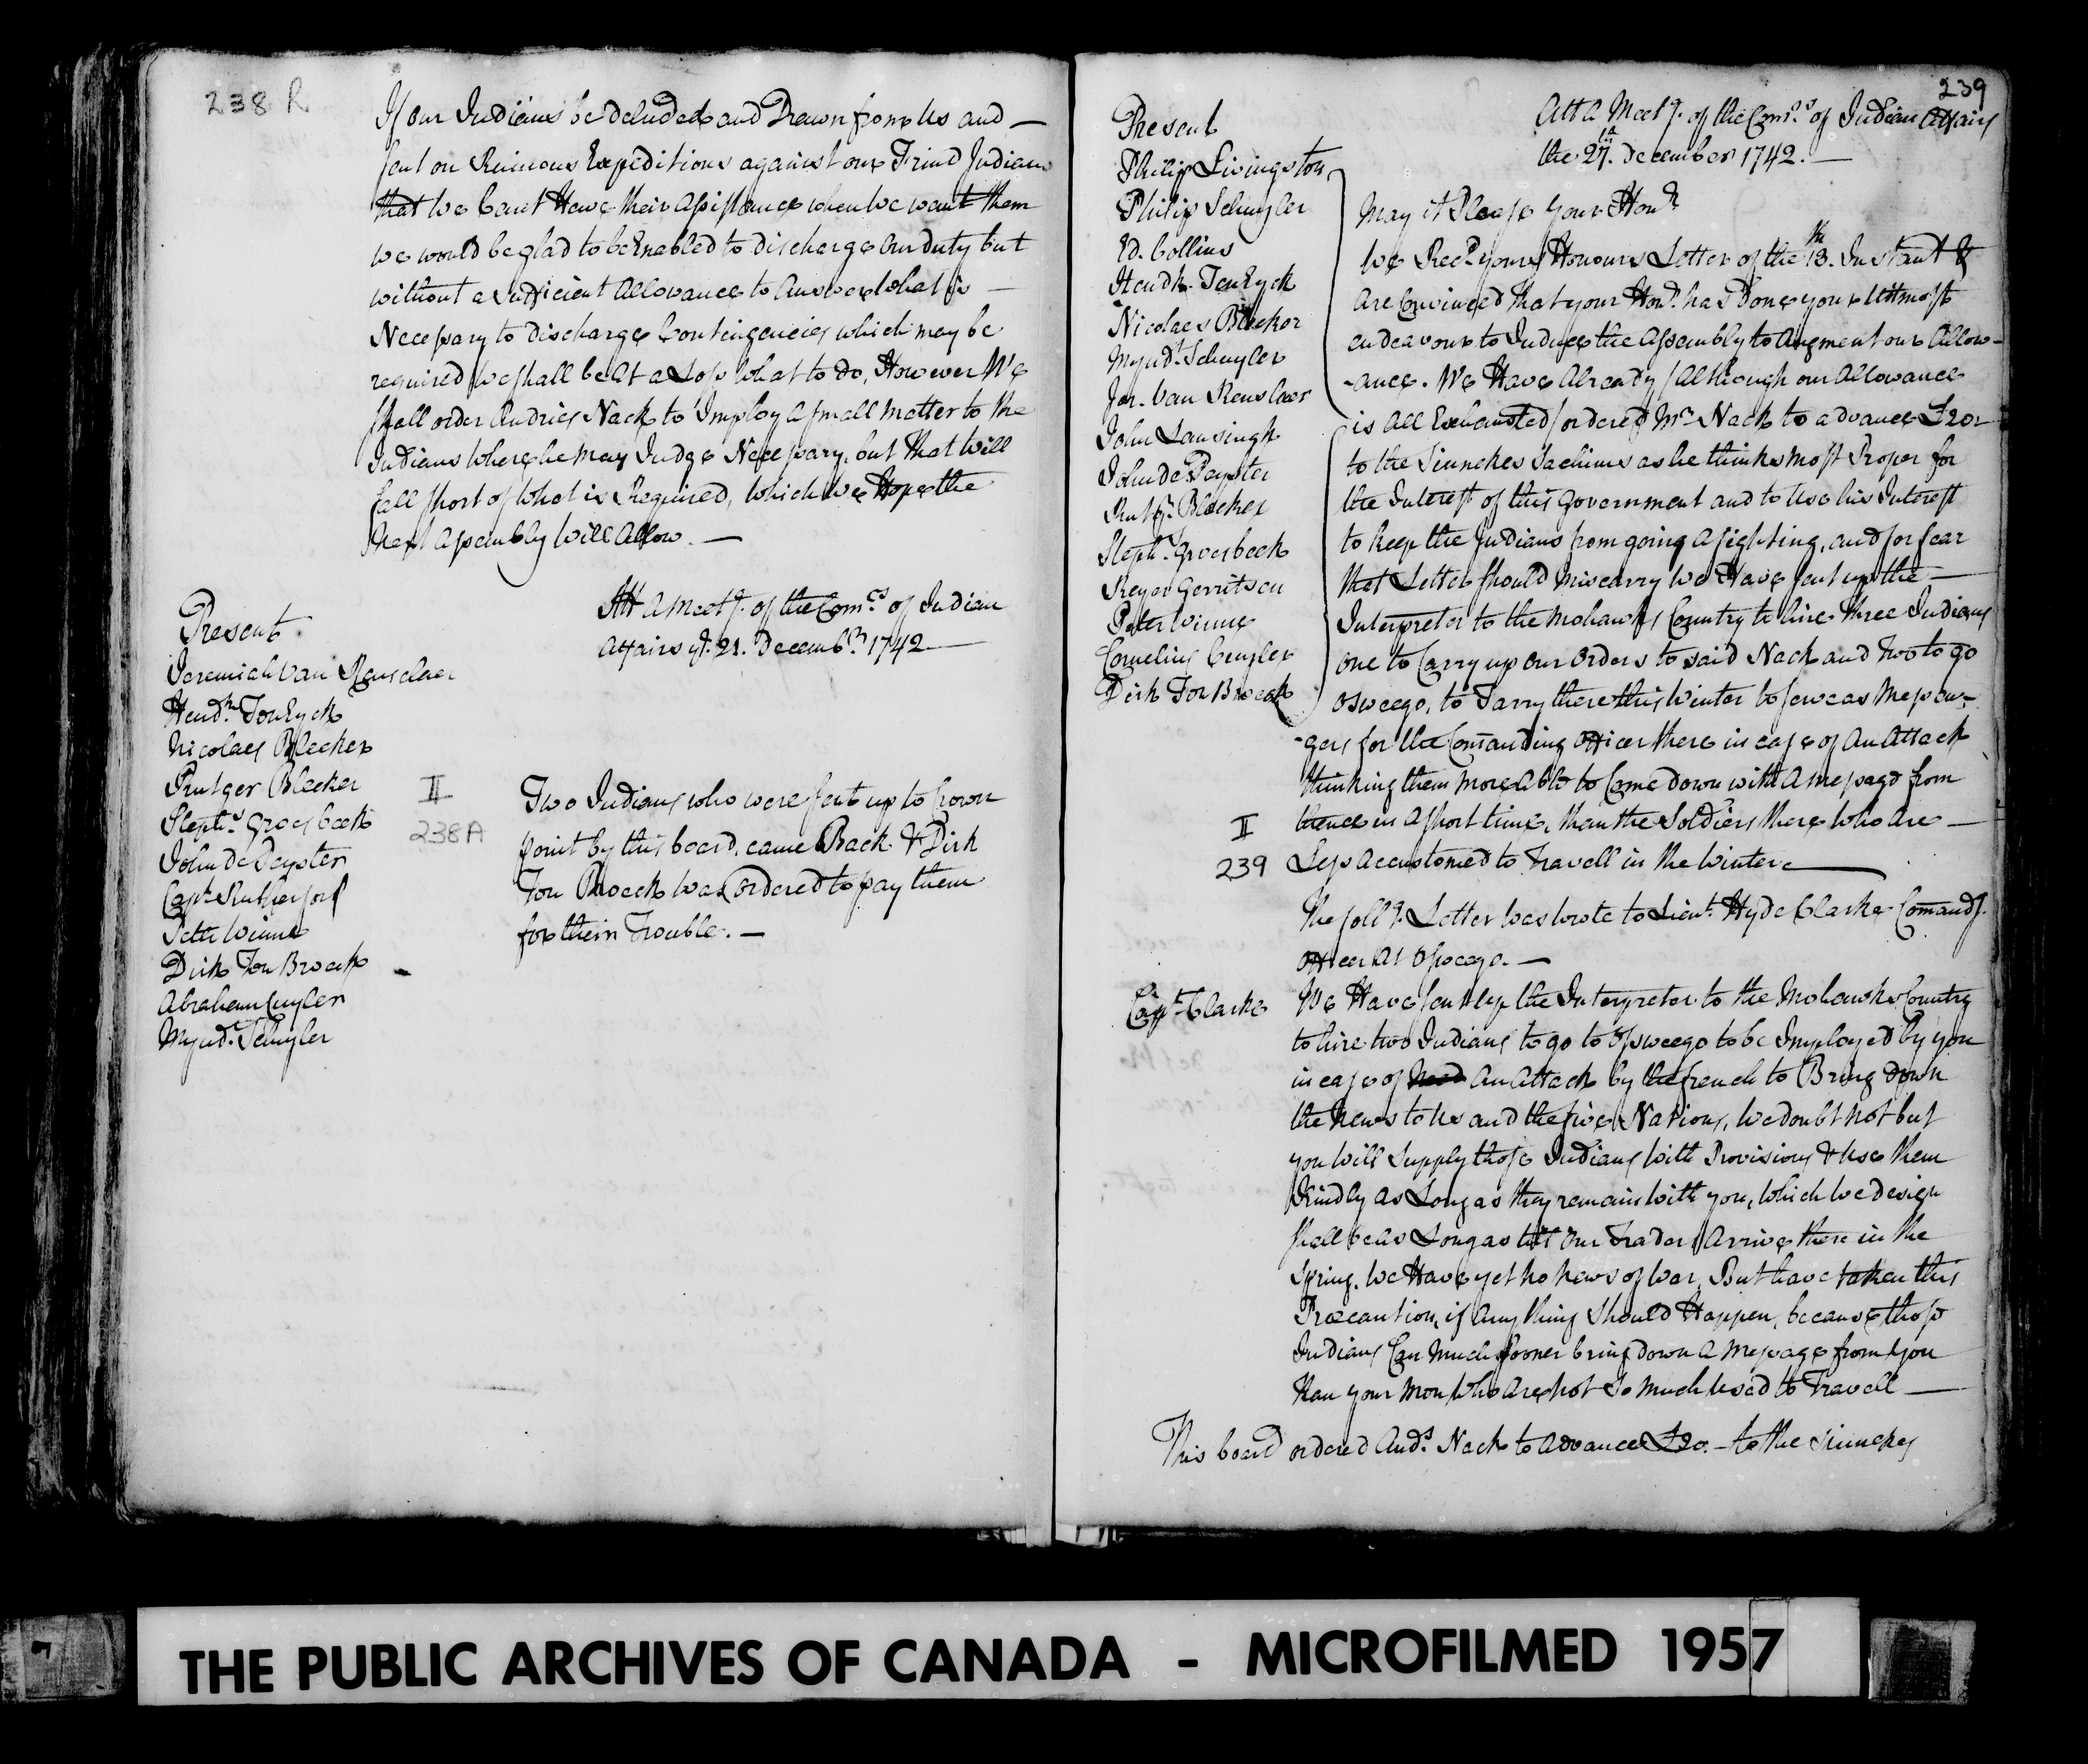 238 R
If our Indians be deluded and Drawn from us and —
sent on Ruinous Expeditions against our Frind Indians
that we Cant Have their assistance when we want them
we would be glad to be Enabled to discharge our duty but
without a sufficient allowance to Answer what is —
Necessary to discharge Contingencies which may be
required we shall be at a Loss what to do, However We
shall order Andries Nack to Imploy a small matter to the
Indians where he may Judge Necessary, but that will
fall short of what is Required, which we Hope the
Next assembly will Allow. —
Att A Meetg. of the Comrs. of Indian
Affairs ye. 21. Decembr. 1742 —
Present.
Jeremiah van Renselaer
Hendk. Ten Eyck
Nicolaes Bleeker
Rutger Bleeker
Stephs. Groesbeek
John De Peyster
Capt. Rutherford
Petr Winne
Dirk Ten Broeck
Abraham Cuyler
Myndt. Schuyler
II
238A
Two Indians who were sent up to Crown
point by this board, came Back & Dirk
Ten Broeck was ordered to pay them
for their Trouble. —
239
Att A Meetg. of the Comrs. of Indian Affairs
the 27th. December 1742. —
Present
Philip Livingston
Philip Schuyler
Ed. Collins
Hendk. Ten Eyck
Nicolaes Bleeker
Myndt. Schuyler
Jer. Van Renslaer
John Lansingh
John De Peyster
Rutgr. Bleeker
Steph. Groesbeck
Reyer Gerritsen
Peter Winne
Cornelius Cuyler
Dirk Ten Broeck
May it Please your Honr.
We Recd. your Honours Letter of the 13th. Instant &
are Convinced that your Honr. has Done your uttmost
endeavour to Induce the assembly to Augment our Allow-
-ance. We Have Already (Although our Allowance
is All Exhausted) ordered Mr. Nack to advance £20-
to the Sinnekes Sachims as he thinks most Proper for
the Interest of this Government and to Use his Interest
to keep the Indians from going a fighting, and for fear
that Letter should miscarry we Have sent up the —
Interpreter to the Mohawks Country to hire three Indians
one to Carry up our orders to said Nack and two to go
Osweego, to Tarry there this Winter to serve as Messen-
-gers for the Comanding officer there in case of An Attack
thinking them more Able to Come down with a message from
II
thence in a short time, than the Soldiers there who are —
239
Less accustomed to Travell in the Winter —
The follg. Letter was wrote to Lieut. Hyde Clarke Comandg.
officer at Osweego. —
Capt. Clarke
We Have sent up the Interpreter to the Mohawks Country
to hire two Indians to go to Osweego to be Imployed by you
in case of need An Attack by the french to Bring Down
the News to us and the five Nations, we doubt not but
you will supply those Indians with Provisions & Use them
Kindly as Long as they remain with you, which we design
shall be as Long as till our Traders Arrive there in the
Spring. We Have yet no news of War, But have taken this
Præcaution, if any thing should Happen, because those
Indians Can Much sooner bring down a message from you
than your Men who are not so much used to Travell —
This board ordered Ands. Nack to advance £20. - to the Sinnekes
THE PUBLIC ARCHIVES OF CANADA - MICROFILMED 1957